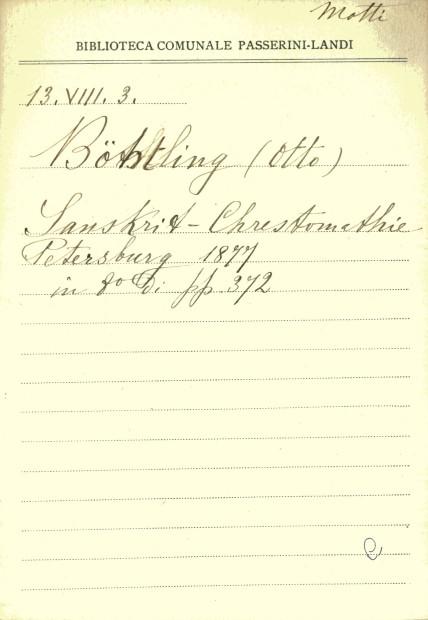 Motti
BIBLIOTECA COMUNALE PASSERINI-LANDI
13. VIII. 3.
Böhtling (Otto)
Sanskrit - Chrestomathie
Petersburg 1877
in 8o di pp 372
C